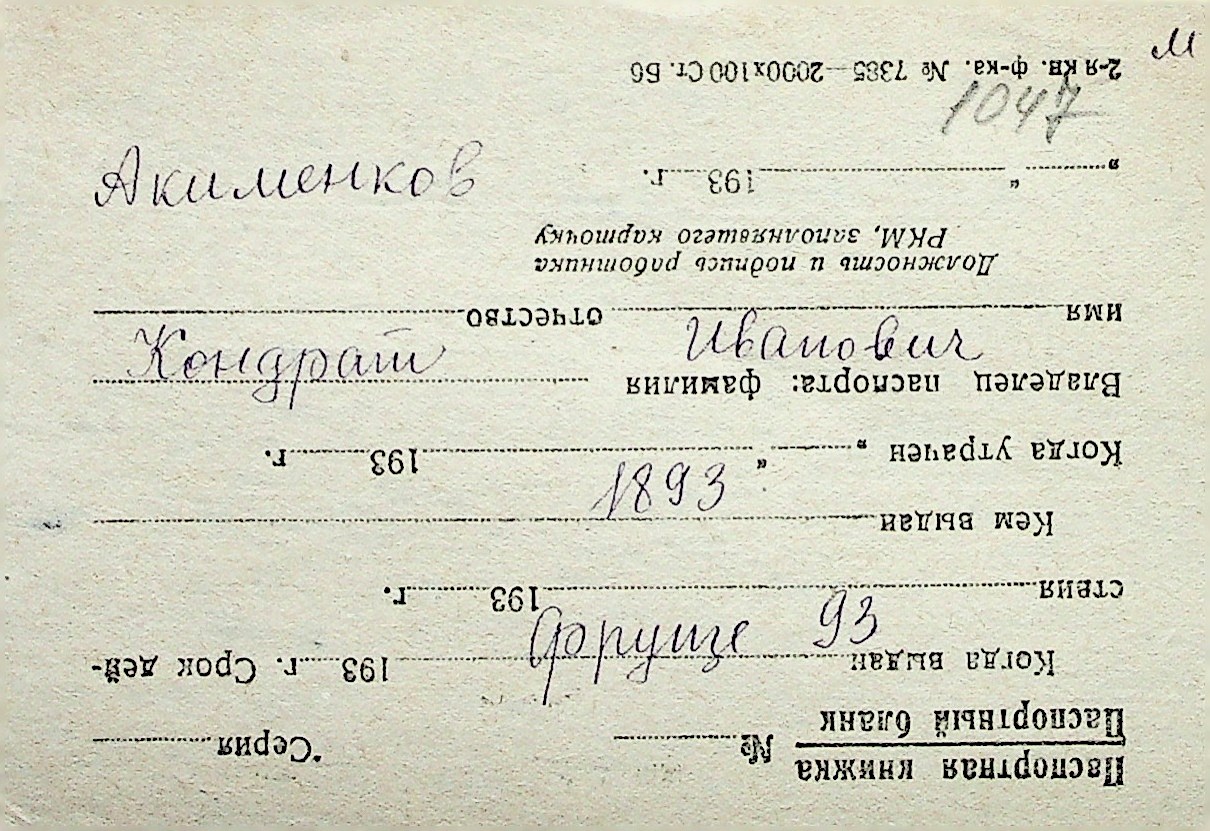 м
1047
Акименков
Кондрат Иванович
1893
Фрунзе 93
Паспортная книжка
Паспортный бланк
№ Серия
Когда выдан 193 г. Срок дей-
ствия 193 г.
Кем выдан
Когда утрачен „ “ 193 г.
Владелец паспорта: фамилия
имя отчество
Должность и подпись работника
РКМ, заполнявшего карточку
„ “ 193 г.
2-я кв. ф-ка. № 7385—2000х100 Ст. Б6